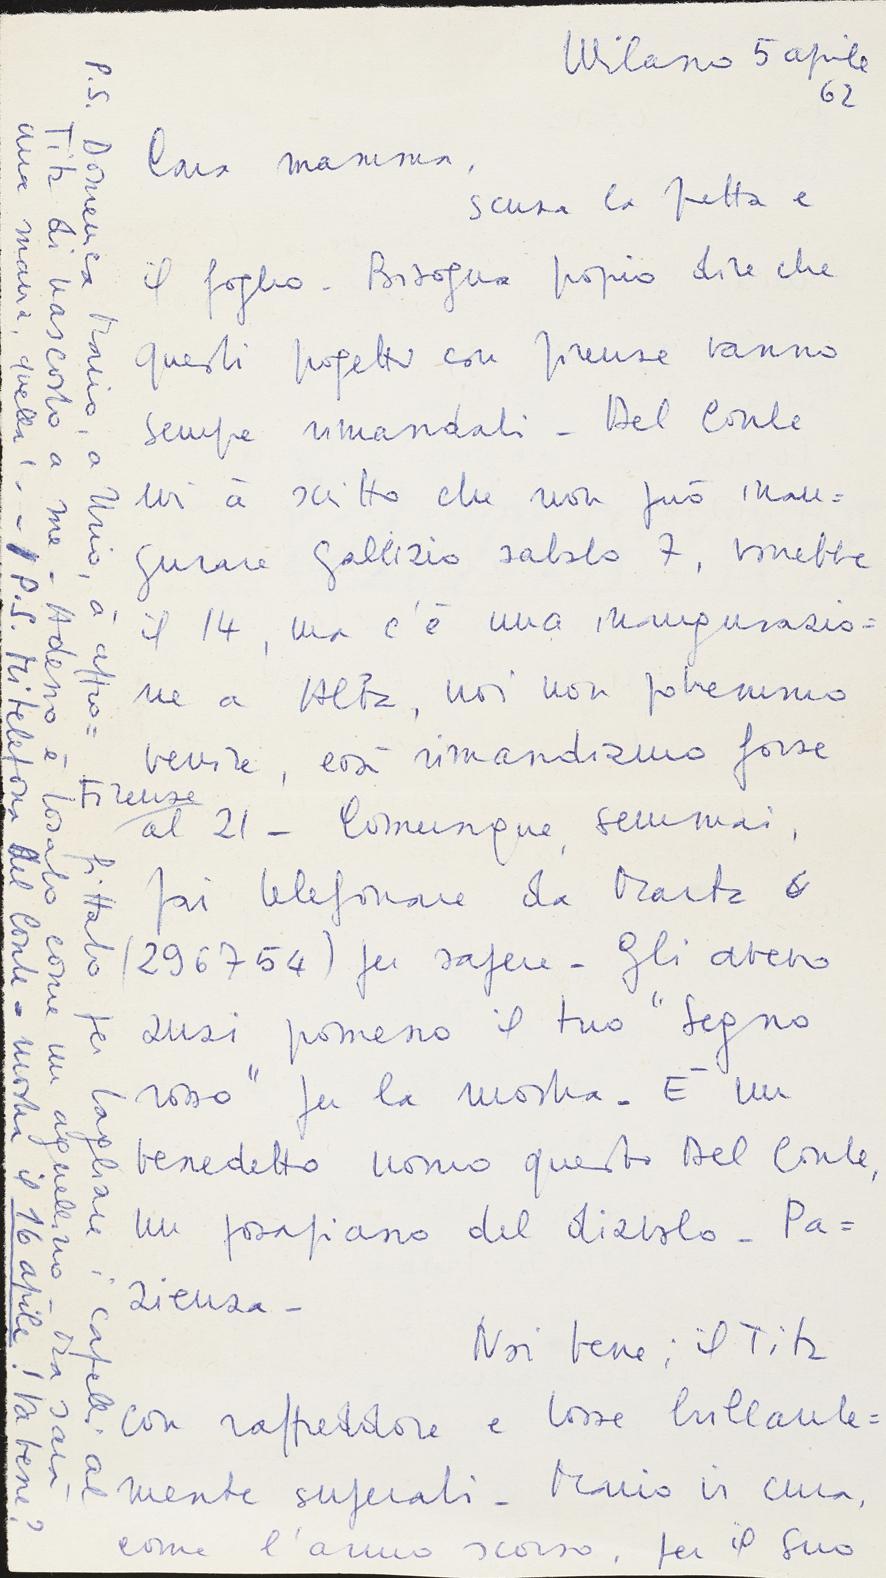 Milano 5 aprile
62
Cara mamma,
scusa la fretta e
il foglio - Bisogna proprio dire che
questi progetti con Firenze vanno
sempre rimandati - Del Conte
mi à scritto che non può inau=
gurare Gallizio sabato 7, vorrebbe
il 14, ma c'è una inaugurazio=
ne a Alba, noi non potremmo
venire, così rimandiamo forse
Firenze
al 21 - Comunque, semmai,
fai telefonare da Marta
(296754) per sapere - Gli avevo
anzi promesso il tuo "Segno
rosso" per la mostra - E' un
benedetto uomo questo Del Conte,
un posapiano del diavolo - Pa=
zienza -
Noi bene; il Tita
con raffreddore e tosse brillante=
mente superati - Mario in cura,
come l'anno scorso, per il suo
P.S. Domenica Mario, a à appro=
fittato per tagliare i capelli al
Tita di nascosto a me - Adesso è tosato come un agnellino - Ma sarà
una mania, quella! - P.S. Mi telefona Del Conte = mostra il 16 aprile! Va bene?